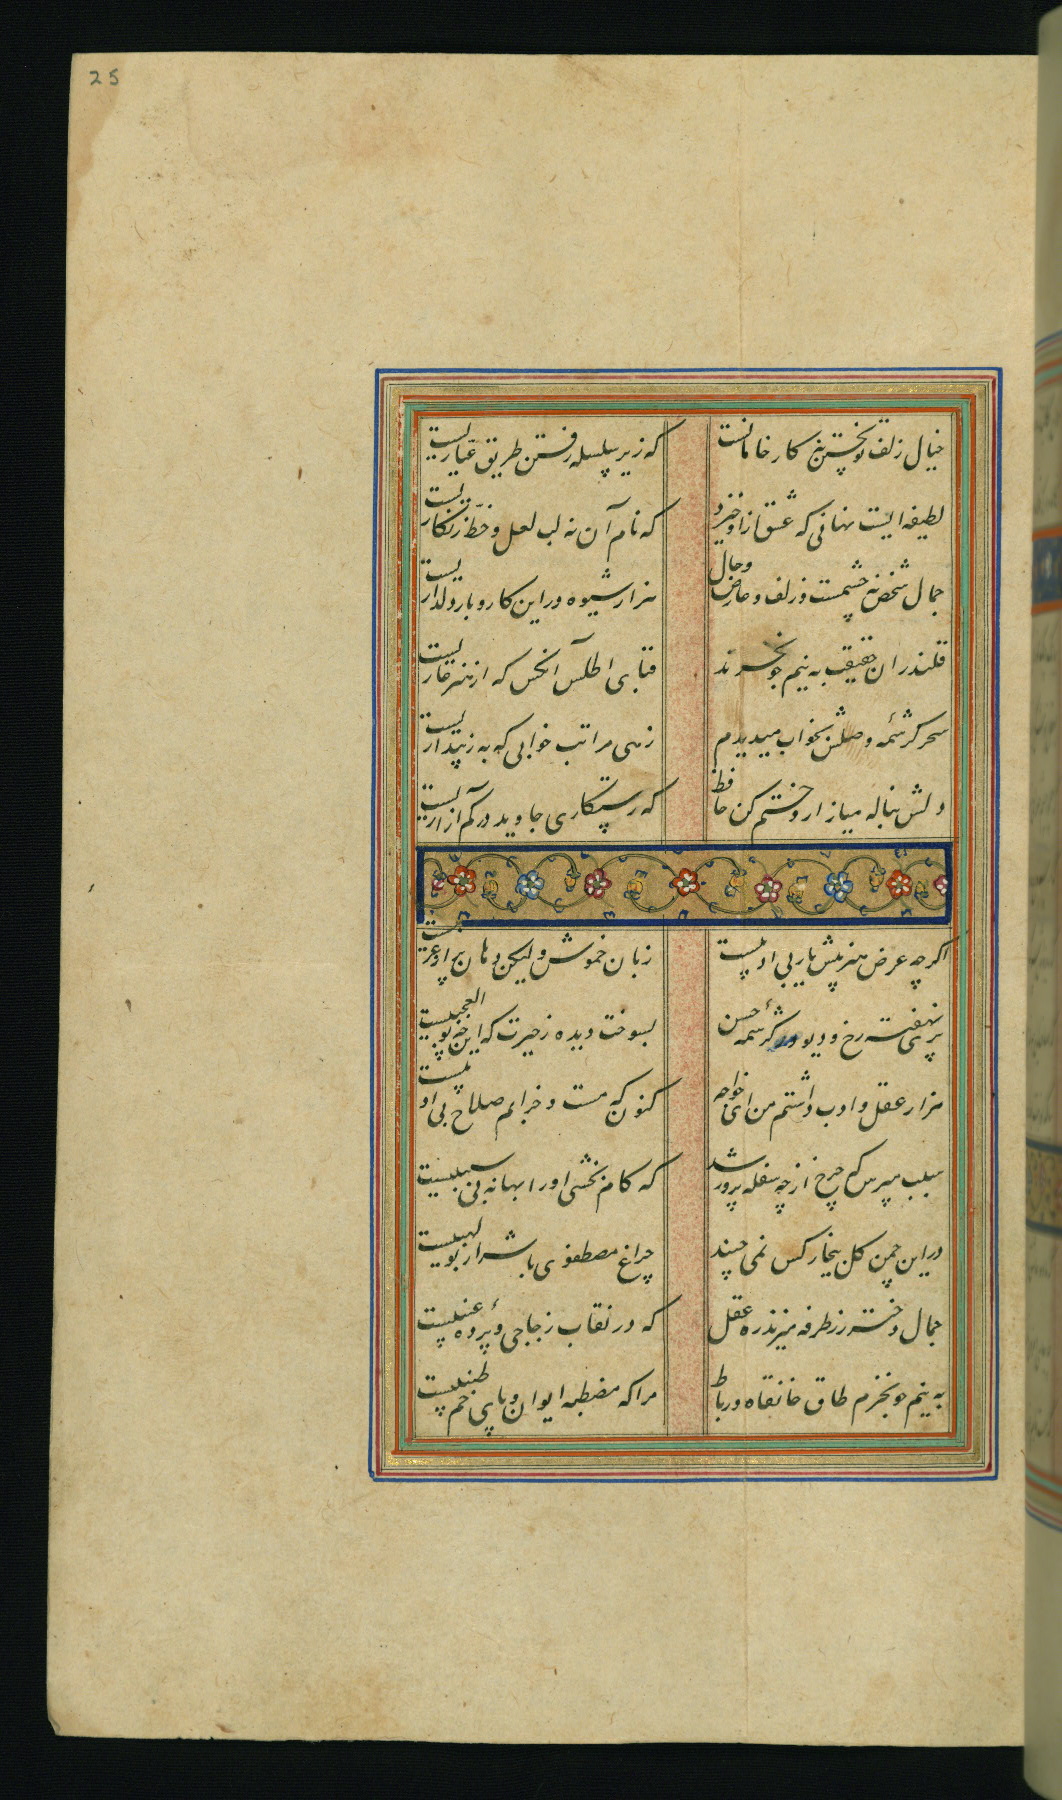 25
خیال زلف تو پختن نه کار خامانست که زیر سلسله رفتن طریق عیاریست
لطیفه ایست نهانی که عشق ازو خیزد که نام آن نه لب لعل و خط زنکاریست
جمال شخص نه چشمست و زلف و عارض وخال هزار شیوه درین کار و بار دلداریست
قلندران حقیقت به نیم جو نخرند قبای اطلس آنکس که از هنر عاریست
سحر کرشمه وصلش بخواب میدیدم زهی مراتب خوابی که به ز بیداریست
دلش بناله میازار و ختم کن حافظ که رستکاری جاوید در کم آزاریست
اکرچه عرض هنر پیش یار بی ادبیست زبان خموش ولیکن دهان پر از عربیست
پری نهفته رخ و دیو در کرشمه حسن بسوخت دیده ز حیرت که این چه بوالعجبیست
هزار عقل و ادب داشتم من ای خواجه کنون که مست و خرابم صلاح بی ادبیست
سبب مپرس که چرخ از چه سفله پرور شد که کام بخشی او را بهانه بی سببیست
درین چمن کل بیخار کس نمی چیند چراغ مصطفوی با شرار بولهبیست
جمال دختر رز طرفه میزند ره عقل که در نقاب زجاجی و پرده عنبیست
به نیم جو نخرم طاق خانقاه و رباط مرا که مصطبه ایوان و پای خم طنبیست